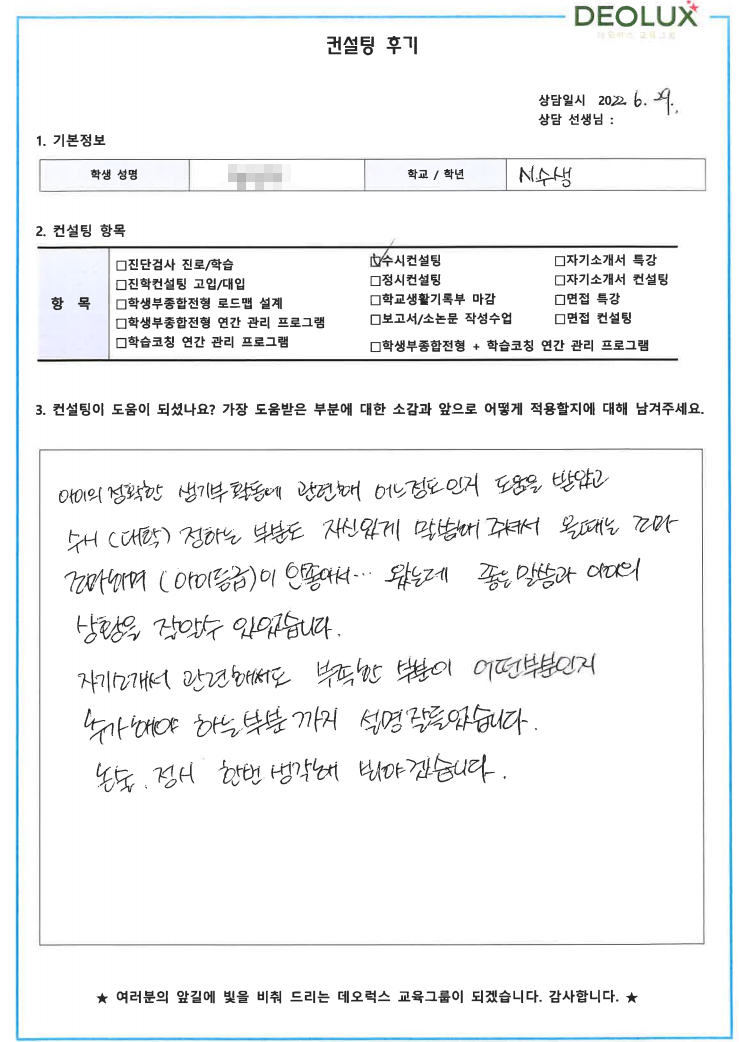 DEOLUX
데오럭스 교육그룹
컨설팅 후기
상담일시 2022. 6. 29.
상담 선생님 :
1. 기본정보
학생 성명
학교 / 학년 N수생
2. 컨설팅 항목
항 목
□진단검사 진로/학습
□진학컨설팅 고입/대입
□학생부종합전형 로드맵 설계
□학생부종합전형 연간 관리 프로그램
□학습코칭 연간 관리 프로그램
☑수시컨설팅
□정시컨설팅
□학교생활기록부 마감
□보고서/소논문 작성수업
□학생부종합전형 + 학습코칭 연간 관리 프로그램
□자기소개서 특강
□자기소개서 컨설팅
□면접 특강
□면접 컨설팅
3. 컨설팅이 도움이 되셨나요? 가장 도움받은 부분에 대한 소감과 앞으로 어떻게 적용할지에 대해 남겨주세요.
아이의 정확한 생기부 활동에 관련해 어느정도인지 도움을 받았고
수시 (대학) 정하는 부분도 자신있게 말씀해 주셔서 올때는 조마
조마하며 (아이등급)이 안좋아서... 왔는데 좋은 말씀과 아이의
상황을 잡알수 있었습니다.
자기소개서 관련해서도 부족한 부분이 어떤부분인지
추가해야 하는부분 까지 설명 잘들었습니다.
논술. 정시 한번 생각해 봐야겠습니다.
★ 여러분의 앞길에 빛을 비춰 드리는 데오럭스 교육그룹이 되겠습니다. 감사합니다. ★